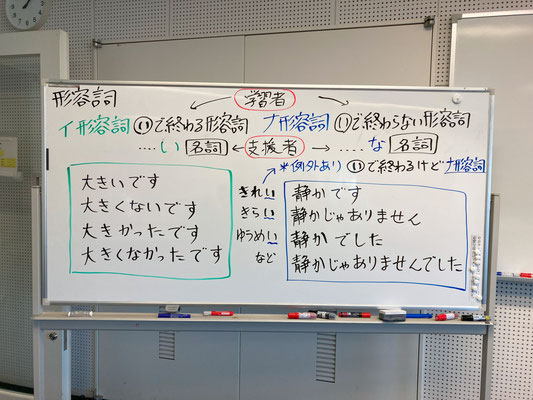 形容詞
学習者
イ形容詞 いで終わる形容詞 ナ形容詞 いで終わらない形容詞
....い 名詞 ← 支援者 → ....な 名詞
*例外あり いで終わるけどナ形容詞
大きいです
大きくないです
大きかったです
大きくなかったです
きれい
きらい
ゆうめい
など
静かです
静かじゃありません
静かでした
静かじゃありませんでした